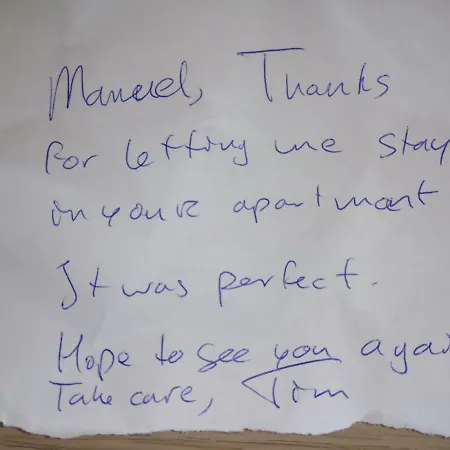 Manuel, Thanks
for letting me stay
in your apartment
It was perfect.
Hope to see you agai
Take care, Tim